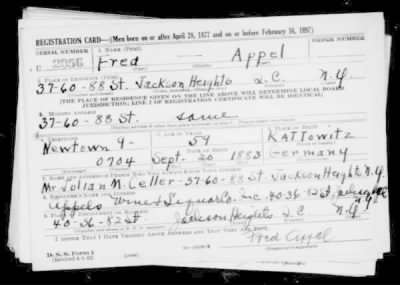 REGISTRATION CARD—(Men born on or after April 28, 1877 and on or before February 16, 1897)
SERIAL NUMBER 1. NAME (Print) ORDER NUMBER
U 2956 Fred Appel
2. PLACE OF RESIDENCE (Print)
37-60-88 St. Jackson Heights L.C. N.Y.
[THE PLACE OF RESIDENCE GIVEN ON THE LINE ABOVE WILL DETERMINE LOCAL BOARD
JURISDICTION; LINE 2 OF REGISTRATION CERTIFICATE WILL BE IDENTICAL]
3. MAILING ADDRESS
37-60-88 St. same
4. TELEPHONE 5. AGE IN YEARS 6. PLACE OF BIRTH
Newtown 9- 59 KATTowitz
0704 Sept. 20 1883 Germany
7. NAME AND ADDRESS OF PERSON WHO WILL ALWAYS KNOW YOUR ADDRESS
Mr Julian M. Celler-37-60-88 St. Jackson Heights N.Y.
8. EMPLOYER'S NAME AND ADDRESS
Appels Wine & Liquor Co. Inc. 40-36-82 St.
9. PLACE OF EMPLOYMENT OR BUSINESS
40-36-82 St Jackson Heights L.C. N.Y.
I AFFIRM THAT I HAVE VERIFIED ABOVE ANSWERS AND THAT THEY ARE TRUE.
D. S. S. Form 1
Fred Appel